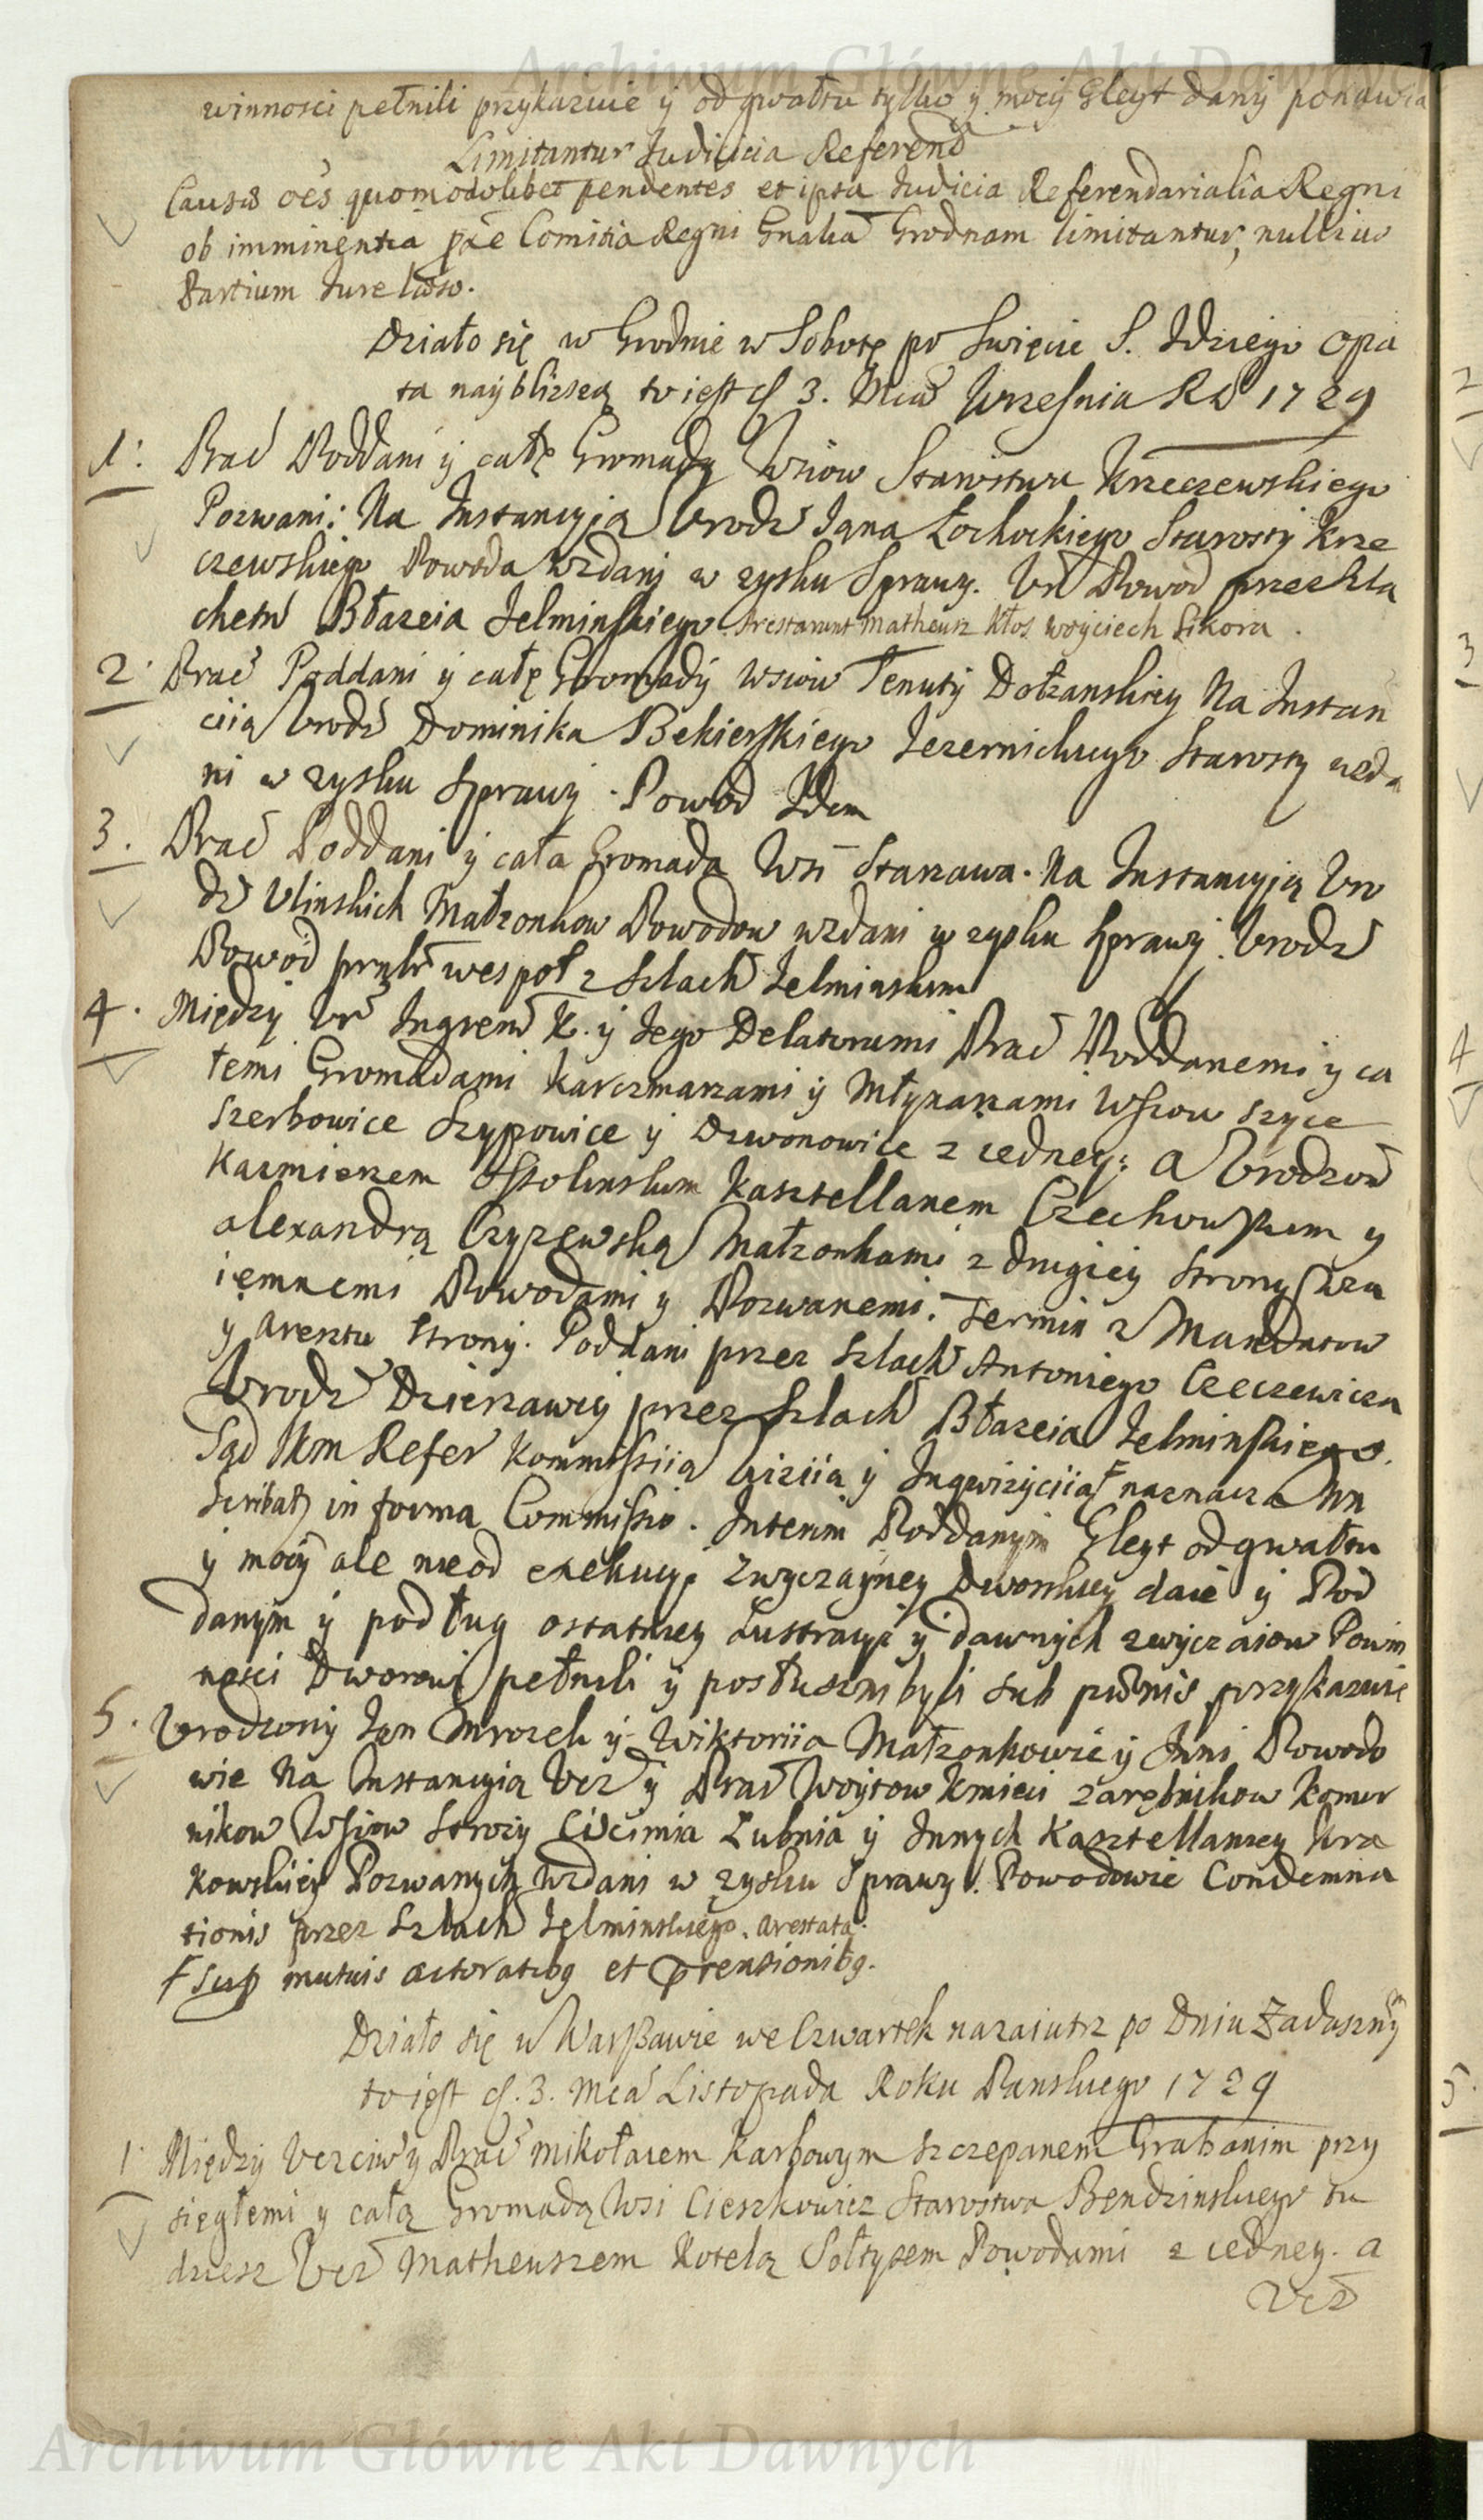 Archiwum Główne Akt Dawnych
winnosci pełnili przykazuie y od gwałtu tylko y mocy Gleyt dany ponawia
Limitantur Judicia Referend
Causæ oēs quomodolibet pendentes et ipsa Judicia Referendarialia Regni
ob imminentia Comitia Regni Gnalia Grodnam limitantur, nullius
Partium Jure læso.
Działo się w Grodnie w Sobotę po Swięcie S. Idziego Opa
ta naybliszą to iest d 3. Mca Wrzesnia RP 1729
1. Prac Poddani y całe Gromady Wsiow Starostwa Krzeczewskiego
Pozwani: Na Instancyją Urodz Jana Łochockiego Starosty Krze
czewskiego Powoda wzdani w zysku Sprawy. Ur Powod przez Szla
chetn Błazeia Jelminskiego. Arestarunt Matheusz Kłos Woyciech Sikora.
2. Prac Poddani y całe Gromady Wsiow Tenuty Dołzanskiey Na Instan
ciią Urodz Dominika Bekierskiego Jezernickiego Starosty wzda
ni w zysku Sprawy. Powod Idem
3. Prac Poddani y cała Gromada Wsi Starzawa. Na Instancyją Uro
dz Ulinskich Małzonkow Powodow wzdani w zysku Sprawy. Urodz
Powod wespoł z Szlach Jelminskim
4. Między Ur Ingrem K. y Jego Delatorami Prac Poddanemi y ca
łemi Gromadami Karczmarzami y Młynarzami Wsiow Szyce
Szerbowice Szypowice y Dzwonowice z iedney: A Urodzon
Kazmierzem Ossolinskim Kasztellanem Czechowskim y
Alexandrą Czyzewską Małzonkami z drugiey Strony Wza
iemnemi Powodami y Pozwanemi. Termin z Mandatow
y Aresztu Strony. Poddani przez Szlach Antoniego Czeczewicza
Urodz Dzierzawcy przez Szlach Błazeia Jelminskiego.
Sąd JKm Refer Kommissiią Wiziią y Inqwizyciią Ŧ naznacza Wn
Scribat in forma Commissio. Interim Poddanym Gleyt od gwałtu
y mocy ale nie od exekucyi zwyczayney Dworskiey daie y Pod
danym y podług ostatniey Lustracyi y dawnych zwyczaiow Powin
nosci Dworowi pełnili y posłuszni byli sub pœnis przykazuie
5. Urodzony Jan Mrozek y Wiktoriia Małzonkowie y Inni Powodo
wie Na Instancyią Ucz y Prac Woytow Kmieci Zarębnikow Komor
nikow Wsiow Strozy Cicimia Lubnia y Innych Kasztellaniey Kra
kowskiey Pozwanych wzdani w zysku Sprawy. Powodowie Condemna
tionis przez Szlach Jelminskiego. arestata.
Ŧ Sup mutuis actoratibq et Prensionibq.
Działo się w Warszawie we Czwartek nazaiutrz po Dniu Zadusznym
to iest d. 3. Mca Listopada Roku Panskiego 1729
1. Między Uczciw y Prac Mikołaiem Karbowym Szczepanem Grabanim przy
sięgłemi y całą Gromadą Wsi Cieszkowicz Starostwa Bendzinskiego tu
dziesz Ucz Matheuszem Kotelą Sołtysem Powodami z iedney. a
Ucz
Archiwum Główne Akt Dawnych